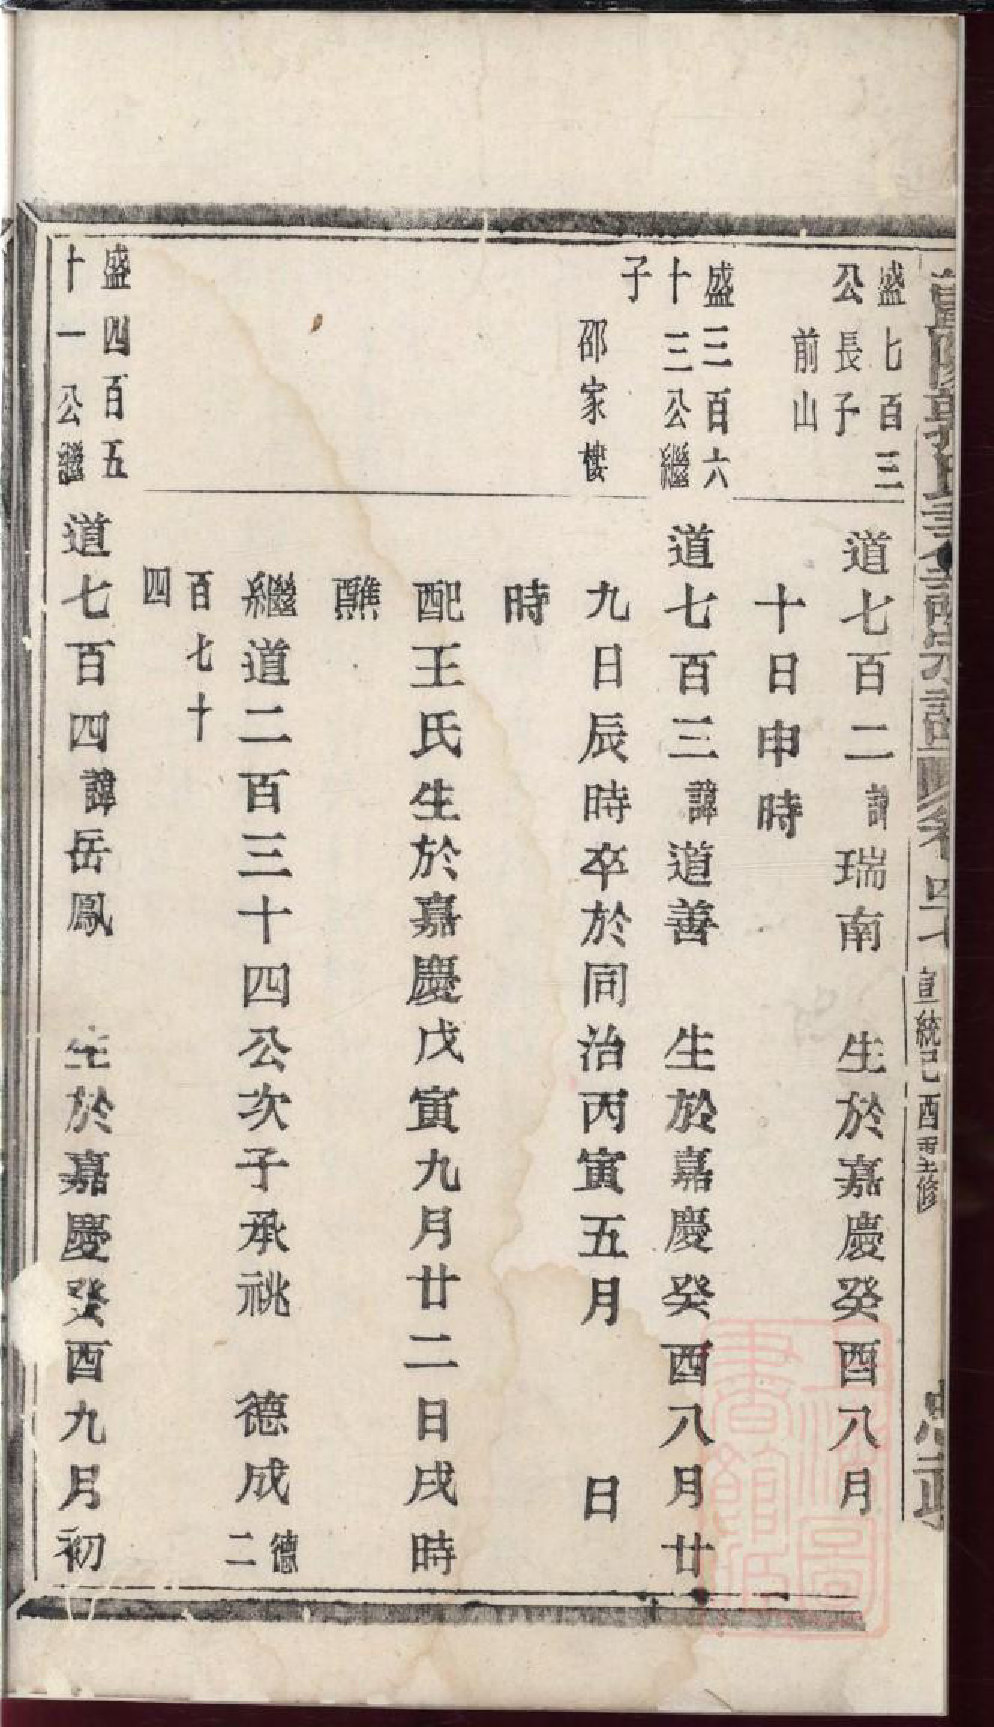 盛七百三
公長子
前山
道七百二諱瑞南　生於嘉慶癸酉八月
十日申時
盛三百六
十三公繼
子
邵家樓
道七百三諱道善　生於嘉慶癸酉八月廿
九日辰時卒於同治丙寅五月　　日
時
配王氏生於嘉慶戊寅九月廿二日戌時
醮
繼道二百三十四公次子承祧　德成德二
百七十
四
盛四百五
十一公繼
道七百四諱岳鳳　生於嘉慶癸酉九月初
宣統己酉重修